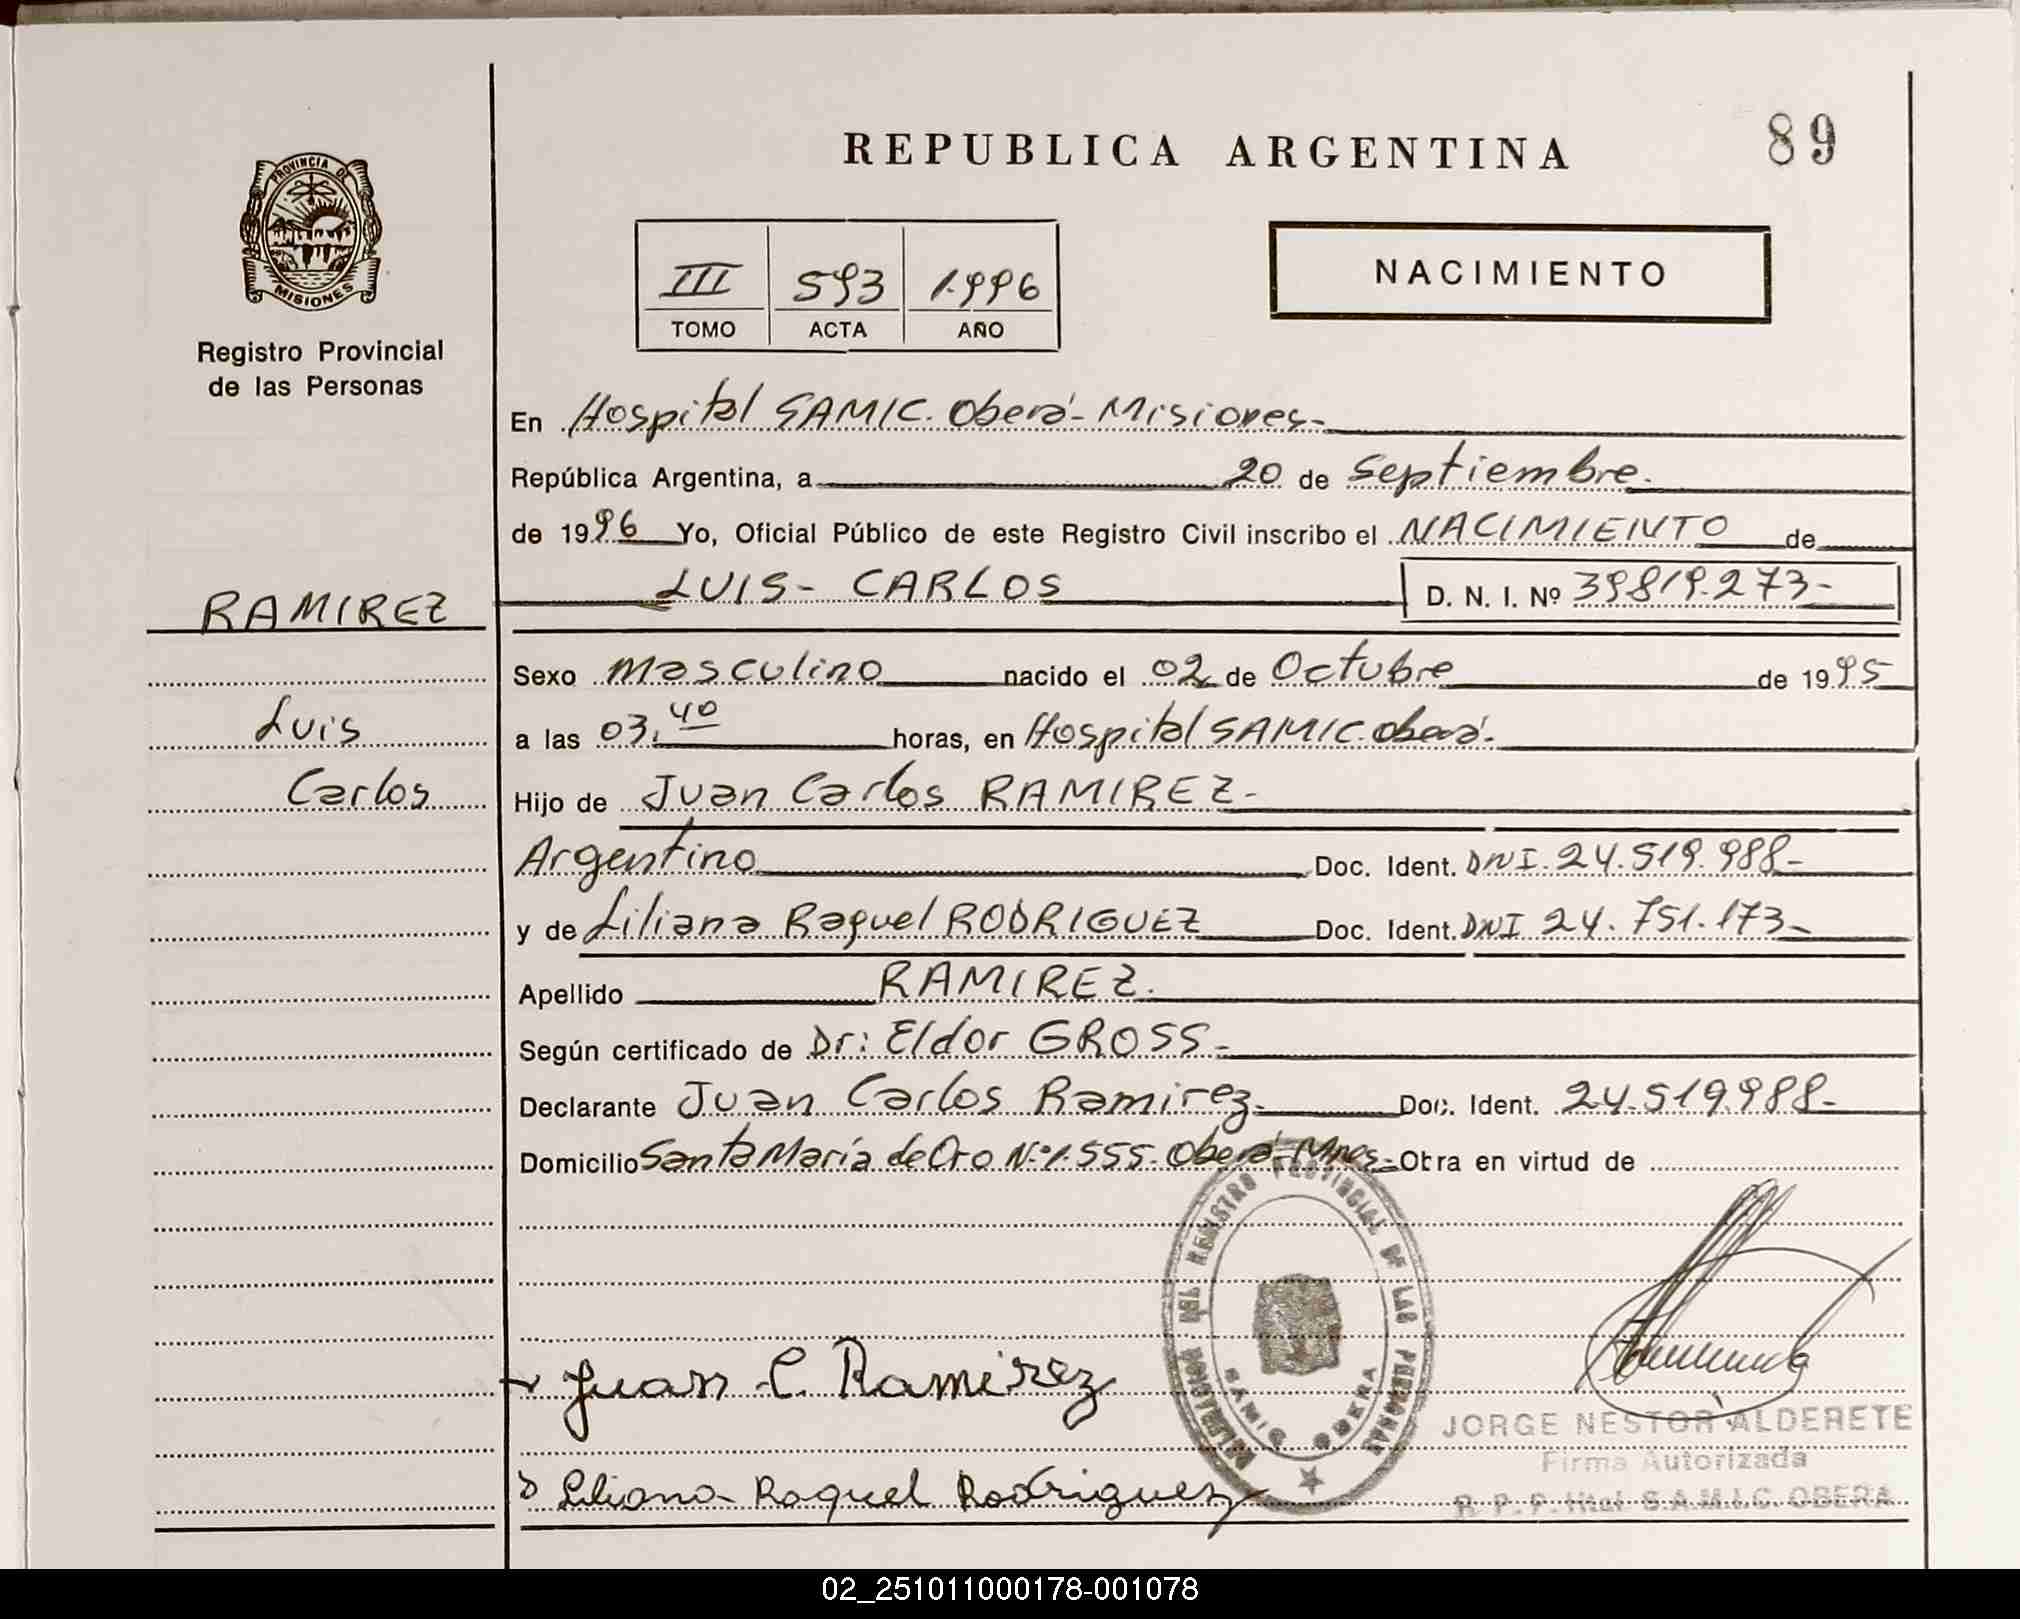 REPUBLICA ARGENTINA
89
PROVINCIA DE
MISIONES
Registro Provincial
de las Personas
III 593 1.996
TOMO ACTA AÑO
NACIMIENTO
En Hospital SAMIC. Oberá- Misiones-
República Argentina, a 20 de Septiembre.
de 1996 Yo, Oficial Público de este Registro Civil inscribo el NACIMIENTO de
LUIS- CARLOS D. N. I. Nº 39819.273-
RAMIREZ
Luis
Carlos
Sexo Masculino nacido el 02 de Octubre de 1995
a las 03,40 horas, en Hospital SAMIC. Oberá.
Hijo de Juan Carlos RAMIREZ-
Argentino Doc. Ident. DNI. 24.519.988-
y de Liliana Raquel RODRIGUEZ Doc. Ident. DNI 24.751.173-
Apellido RAMIREZ.
Según certificado de Dr: Eldor GROSS-
Declarante Juan Carlos Ramirez- Doc. Ident. 24.519.988-
Domicilio Santa María de Oro Nº 1.555. Oberá-Mnes- Otra en virtud de
DELEGACION DEL REGISTRO PROVINCIAL DE LAS PERSONAS
SAMIC OBERA
Juan C. Ramirez
JORGE NESTOR ALDERETE
Firma Autorizada
R. P. P. Htal S.A.M.I.C. OBERA
Liliana Raquel Rodriguez
02_251011000178-001078